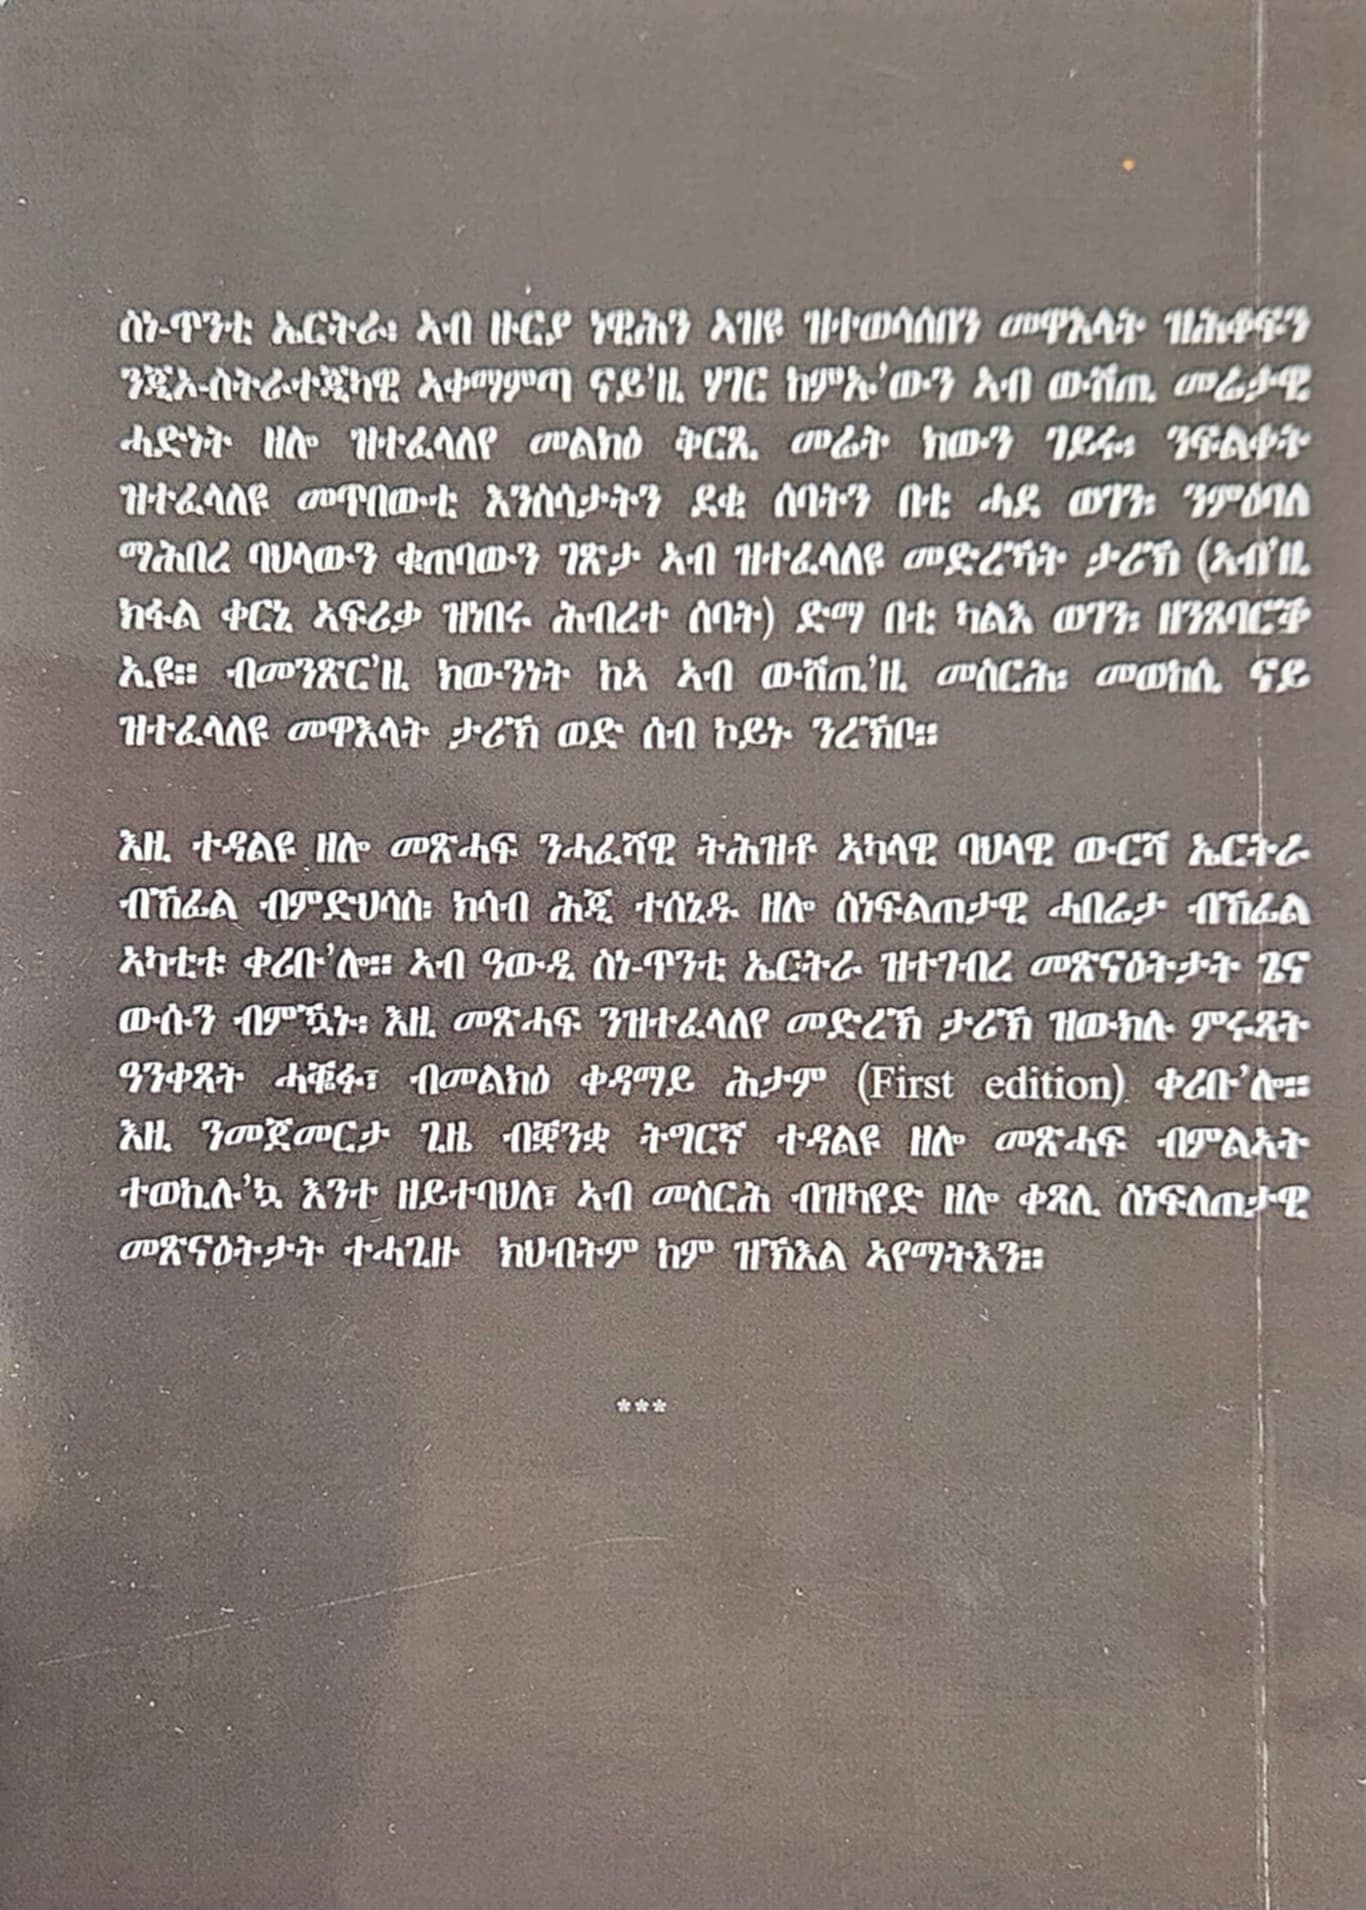 ስነ-ጥንቲ ኤርትራ፡ ኣብ ዙርያ ነዊሕን ኣዝዩ ዝተወሳሰበን መዋእላት ዝሕቆፍን
ንጂኦ-ስትራተጂካዊ ኣቀማምጣ ናይ'ዚ ሃገር ከምኡ'ውን ኣብ ውሽጢ መሬታዊ
ሓድነት ዘሎ ዝተፈላለየ መልክዕ ቅርጺ መሬት ክውን ገይሩ፡ ንፍልቀት
ዝተፈላለዩ መጥበውቲ እንስሳታትን ደቂ ሰባትን በቲ ሓደ ወገን፡ ንምዕባለ
ማሕበረ ባህላውን ቁጠባውን ገጽታ ኣብ ዝተፈላለዩ መድረኻት ታሪኽ (ኣብ'ዚ
ክፋል ቀርኒ ኣፍሪቃ ዝነበሩ ሕብረተ ሰባት) ድማ በቲ ካልእ ወገን፡ ዘንጸባርቕ
ኢዩ። ብመንጽር'ዚ ክውንነት ከኣ ኣብ ውሽጢ'ዚ መስርሕ፡ መወከሲ ናይ
ዝተፈላለዩ መዋእላት ታሪኽ ወድ ሰብ ኮይኑ ንረኽቦ።
እዚ ተዳልዩ ዘሎ መጽሓፍ ንሓፈሻዊ ትሕዝቶ ኣካላዊ ባህላዊ ውርሻ ኤርትራ
ብኸፊል ብምድህሳስ፡ ክሳብ ሕጂ ተሰኒዱ ዘሎ ስነፍልጠታዊ ሓበሬታ ብኸፊል
ኣካቲቱ ቀሪቡ'ሎ። ኣብ ዓውዲ ስነ-ጥንቲ ኤርትራ ዝተገብረ መጽናዕትታት ጌና
ውሱን ብምዃኑ፡ እዚ መጽሓፍ ንዝተፈላለየ መድረኽ ታሪኽ ዝውክሉ ምሩጻት
ዓንቀጻት ሓቚፉ፣ ብመልክዕ ቀዳማይ ሕታም (First edition) ቀሪቡ'ሎ።
እዚ ንመጀመርታ ጊዜ ብቛንቋ ትግርኛ ተዳልዩ ዘሎ መጽሓፍ ብምልኣት
ተወኪሉ'ኳ እንተ ዘይተባህለ፣ ኣብ መስርሕ ብዝካየድ ዘሎ ቀጻሊ ስነፍለጠታዊ
መጽናዕትታት ተሓጊዙ ክህብትም ከም ዝኽእል ኣየማትእን።
***